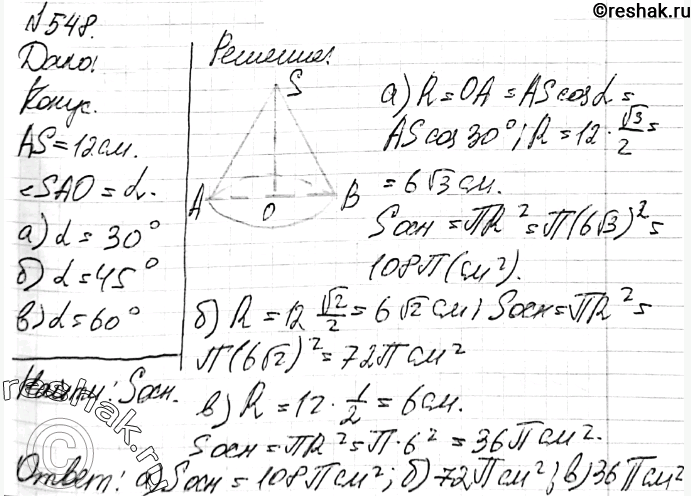 ©reshak.ru
№548.
Дано:
Решение:
Конус.
AS=12см.
∠SAO=α.
а) α=30°
б) α=45°
в) α=60°
Найти: Sосн.
S
A
O
B
а) R=OA=AScosα=
AScos30°; R=12·√3/2=
=6√3см.
Sосн=πR²=π(6√3)²=
108π(см²).
б) R=12 √2/2=6√2см; Sосн=πR²=
π(6√2)²=72πсм²
в) R=12·1/2=6см.
Sосн=πR²=π·6²=36πсм².
Ответ: а) Sосн=108πсм²; б) 72πсм²; в) 36πсм²
reshak.ru
©